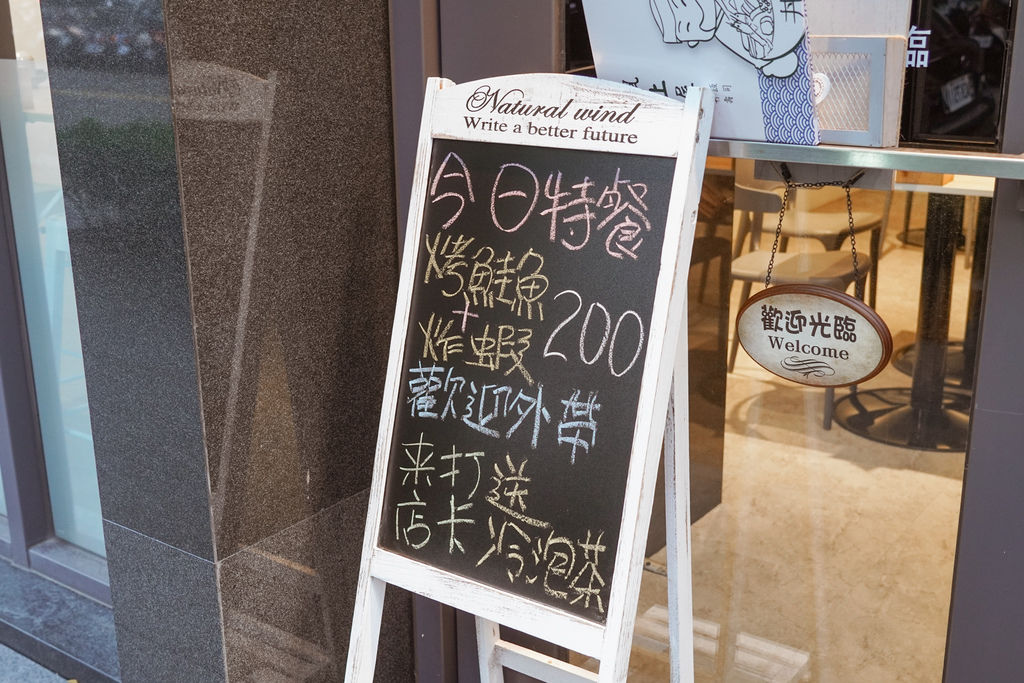 Natural wind
Write a better future
今日特餐
烤鮭魚
+
炸蝦
200
歡迎外帶
来打
店卡
送
冷泡茶
歡迎光臨
Welcome
臨